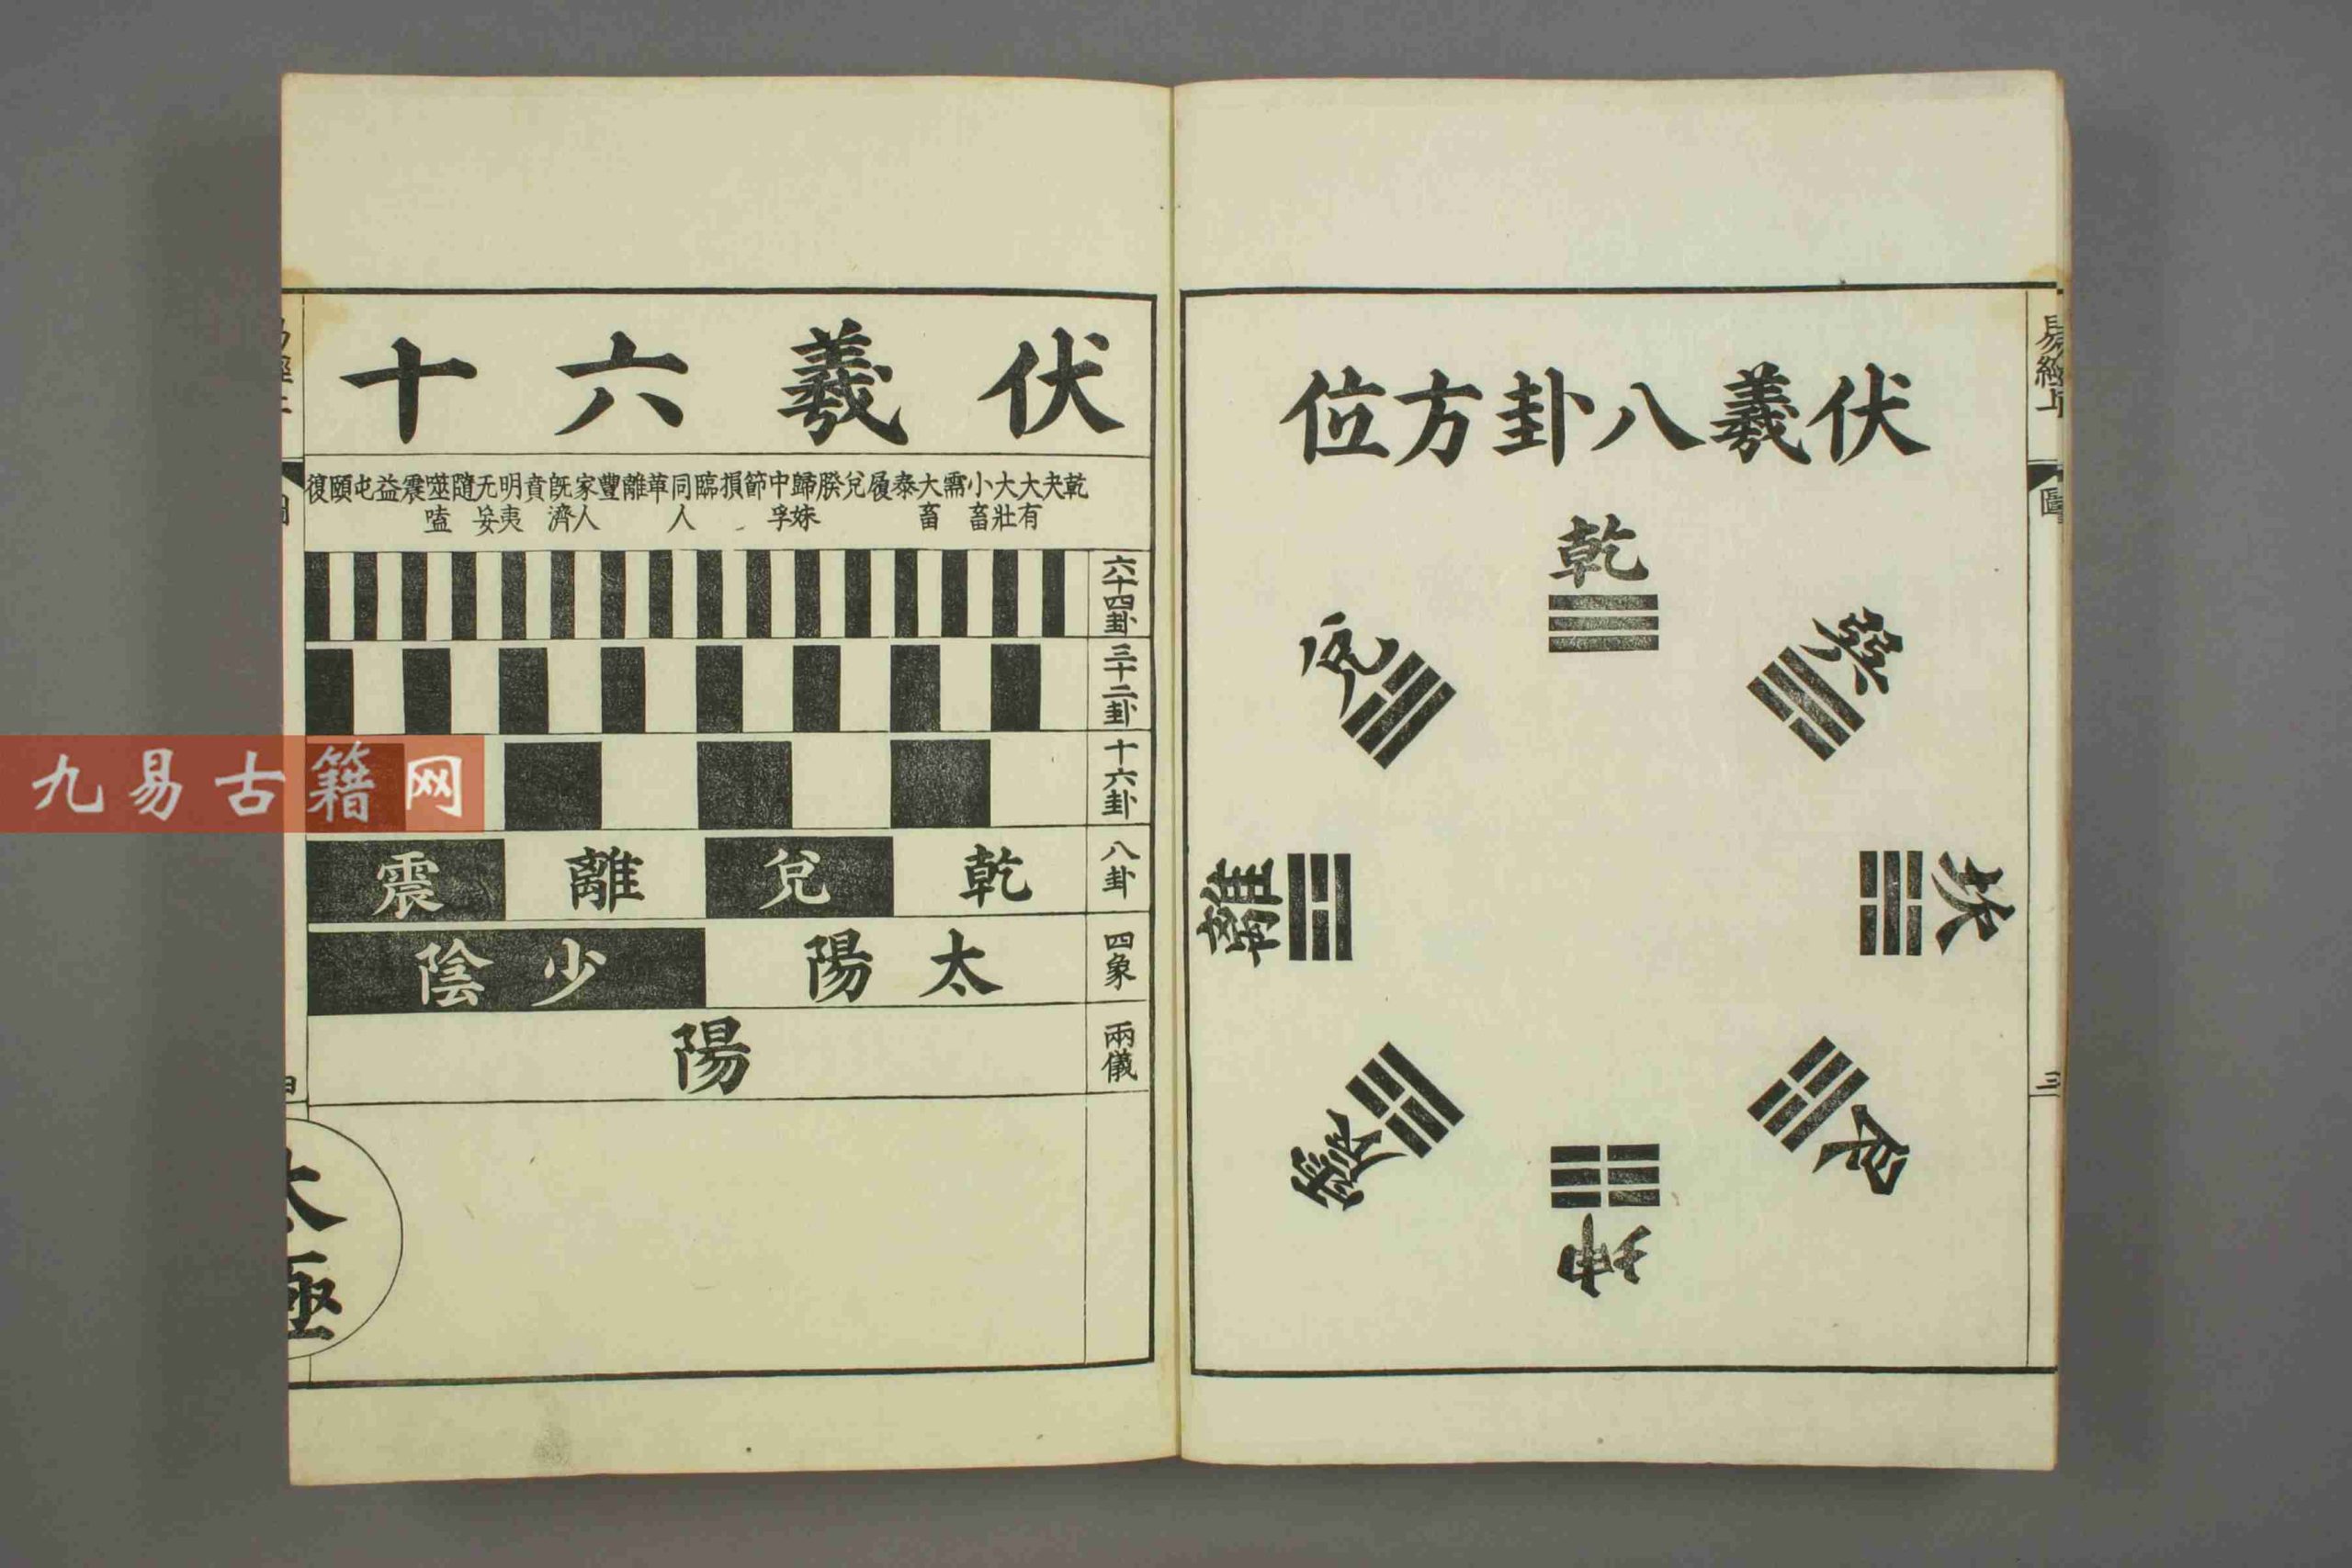 易經上
圖
三
伏羲八卦方位
乾
兌
巽
離
坎
震
艮
坤
伏羲六十
乾夬大有大壯小畜需大畜泰履兌睽歸妹中孚節損臨同人革離豐家人旣濟賁明夷无妄隨噬嗑震益屯頤復
六十四卦
三十二卦
十六卦
八卦
乾兌離震
四象
太陽少陰
兩儀
陽
太極
九易古籍网